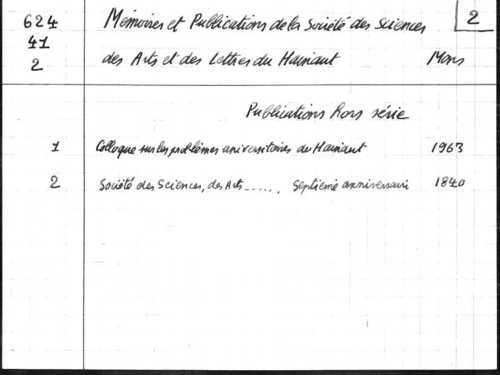 624 Mémoires et Publications de la Société des Sciences 2
41
2 des Arts et des Lettres du Hainaut Mons
Publications hors série
1 Colloque sur les problèmes universitaires du Hainaut 1963
2 Société des Sciences, des Arts ....., Septième anniversaire 1840